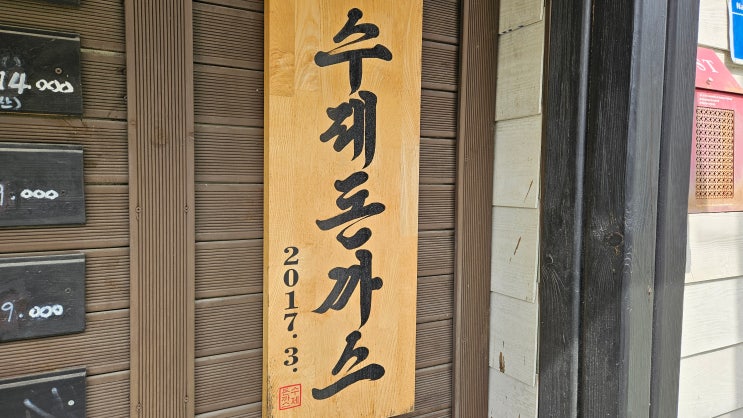 수제돈까스
2017.3.
14.000
9.000
9.000
수제